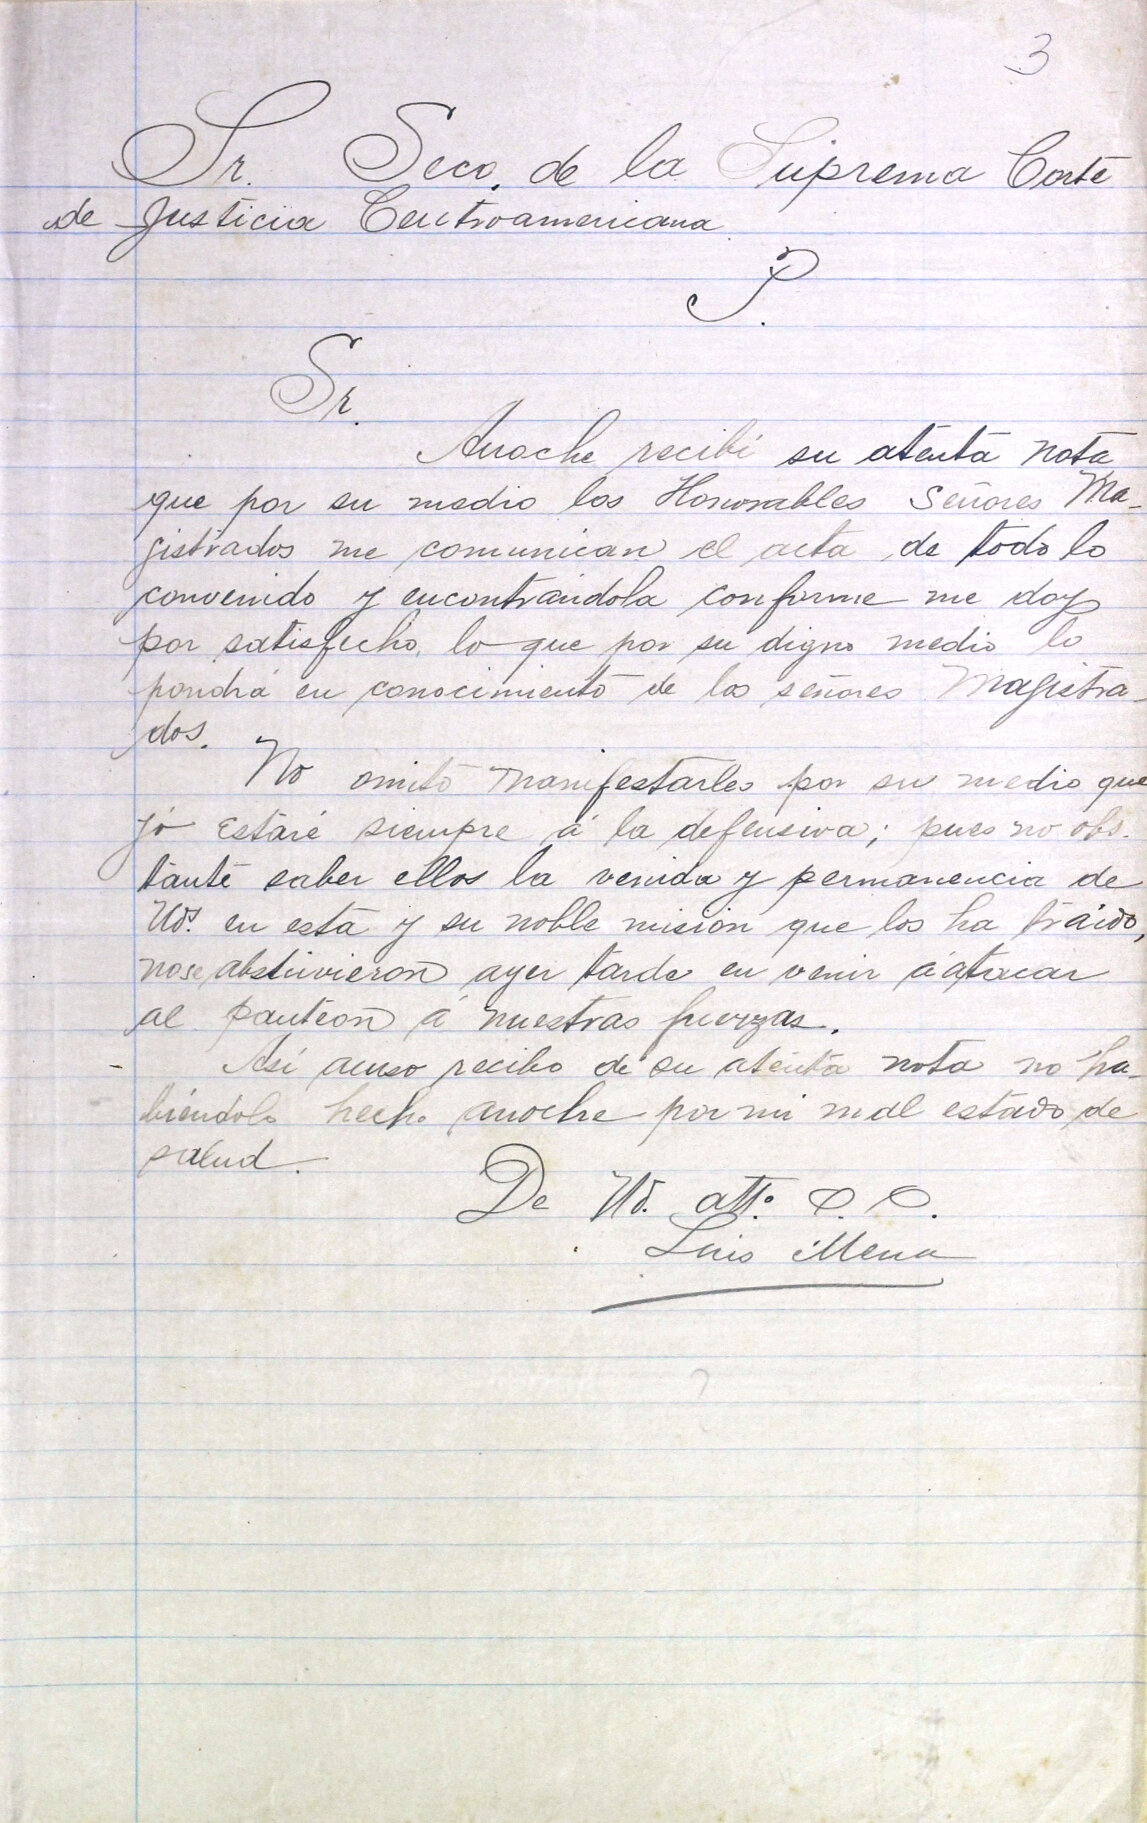 3
Sr. Seco. de la Suprema Corte
de Justicia Centroamericana
P.
Sr.
Anoche recibí su atenta nota
que por su medio los Honorables Señores Ma-
gistrados me comunican el acta de todo lo
convenido y encontrándola conforme me doy
por satisfecho, lo que por su digno medio lo
pondrá en conocimiento de los señores Magistra-
dos.
No omito manifestarles por su medio que
yo estaré siempre á la defensiva; pues no obs-
tante saber ellos la venida y permanencia de
Uds. en esta y su noble misión que los ha traido,
no se abstuvieron ayer tarde en venir á atacar
al panteon á nuestras fuerzas.
Así acuso recibo de su atenta nota no ha-
biéndolo hecho anoche por mi mal estado de
salud.
De Ud. atto.
Luis Mena